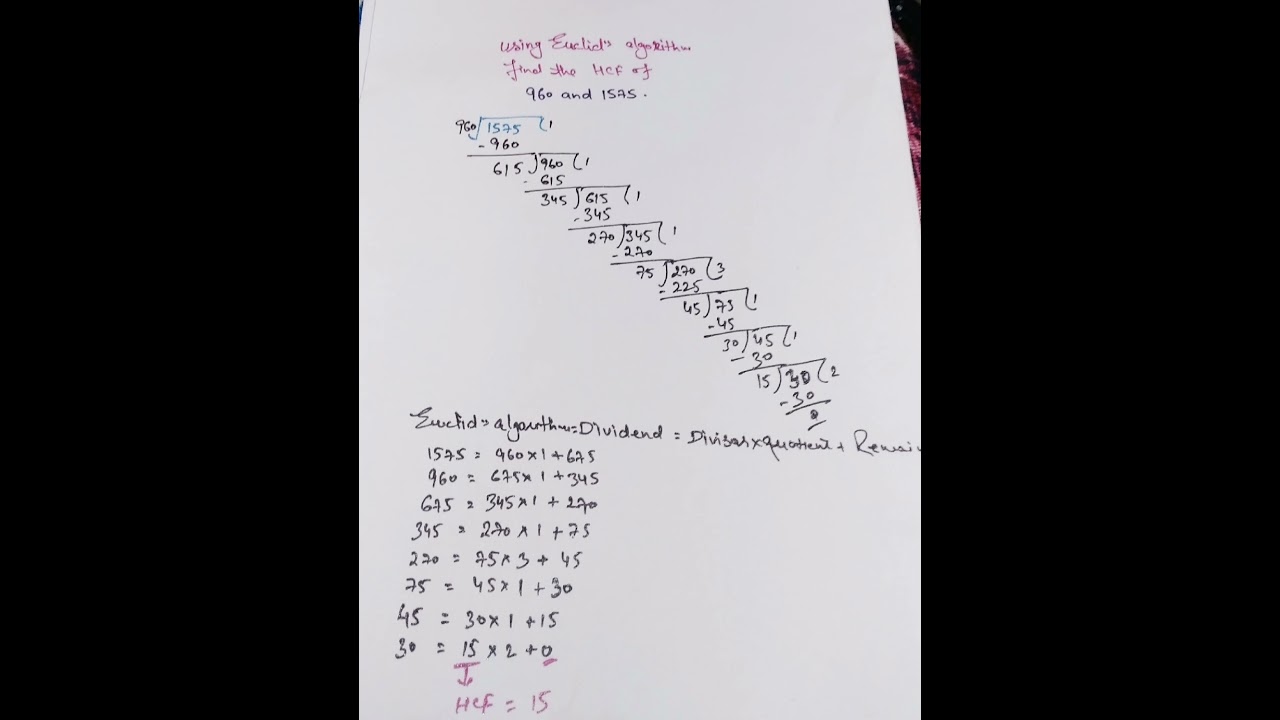 using Euclid's algorithm
find the HCF of
960 and 1575.
960 1575 1
- 960
615 960 1
- 615
345 615 1
- 345
270 345 1
- 270
75 270 3
- 225
45 75 1
- 45
30 45 1
- 30
15 30 2
- 30
0
Euclid's algorithm = Dividend = Divisor × quotient + Remain
1575 = 960 × 1 + 675
960 = 675 × 1 + 345
675 = 345 × 1 + 270
345 = 270 × 1 + 75
270 = 75 × 3 + 45
75 = 45 × 1 + 30
45 = 30 × 1 + 15
30 = 15 × 2 + 0
HCF = 15